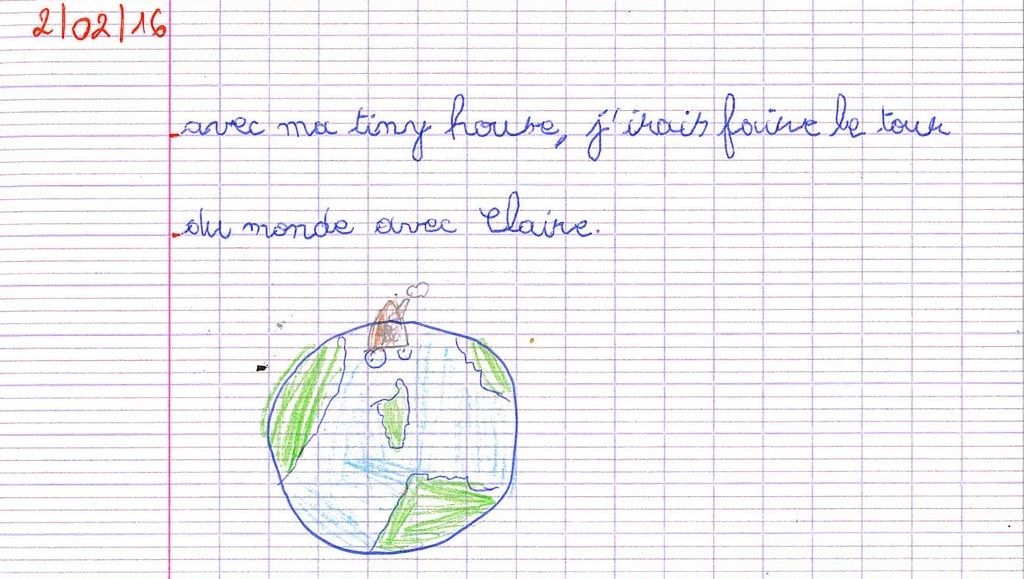 2/02/16
avec ma tiny house, j'irais faire le tour
du monde avec Claire.